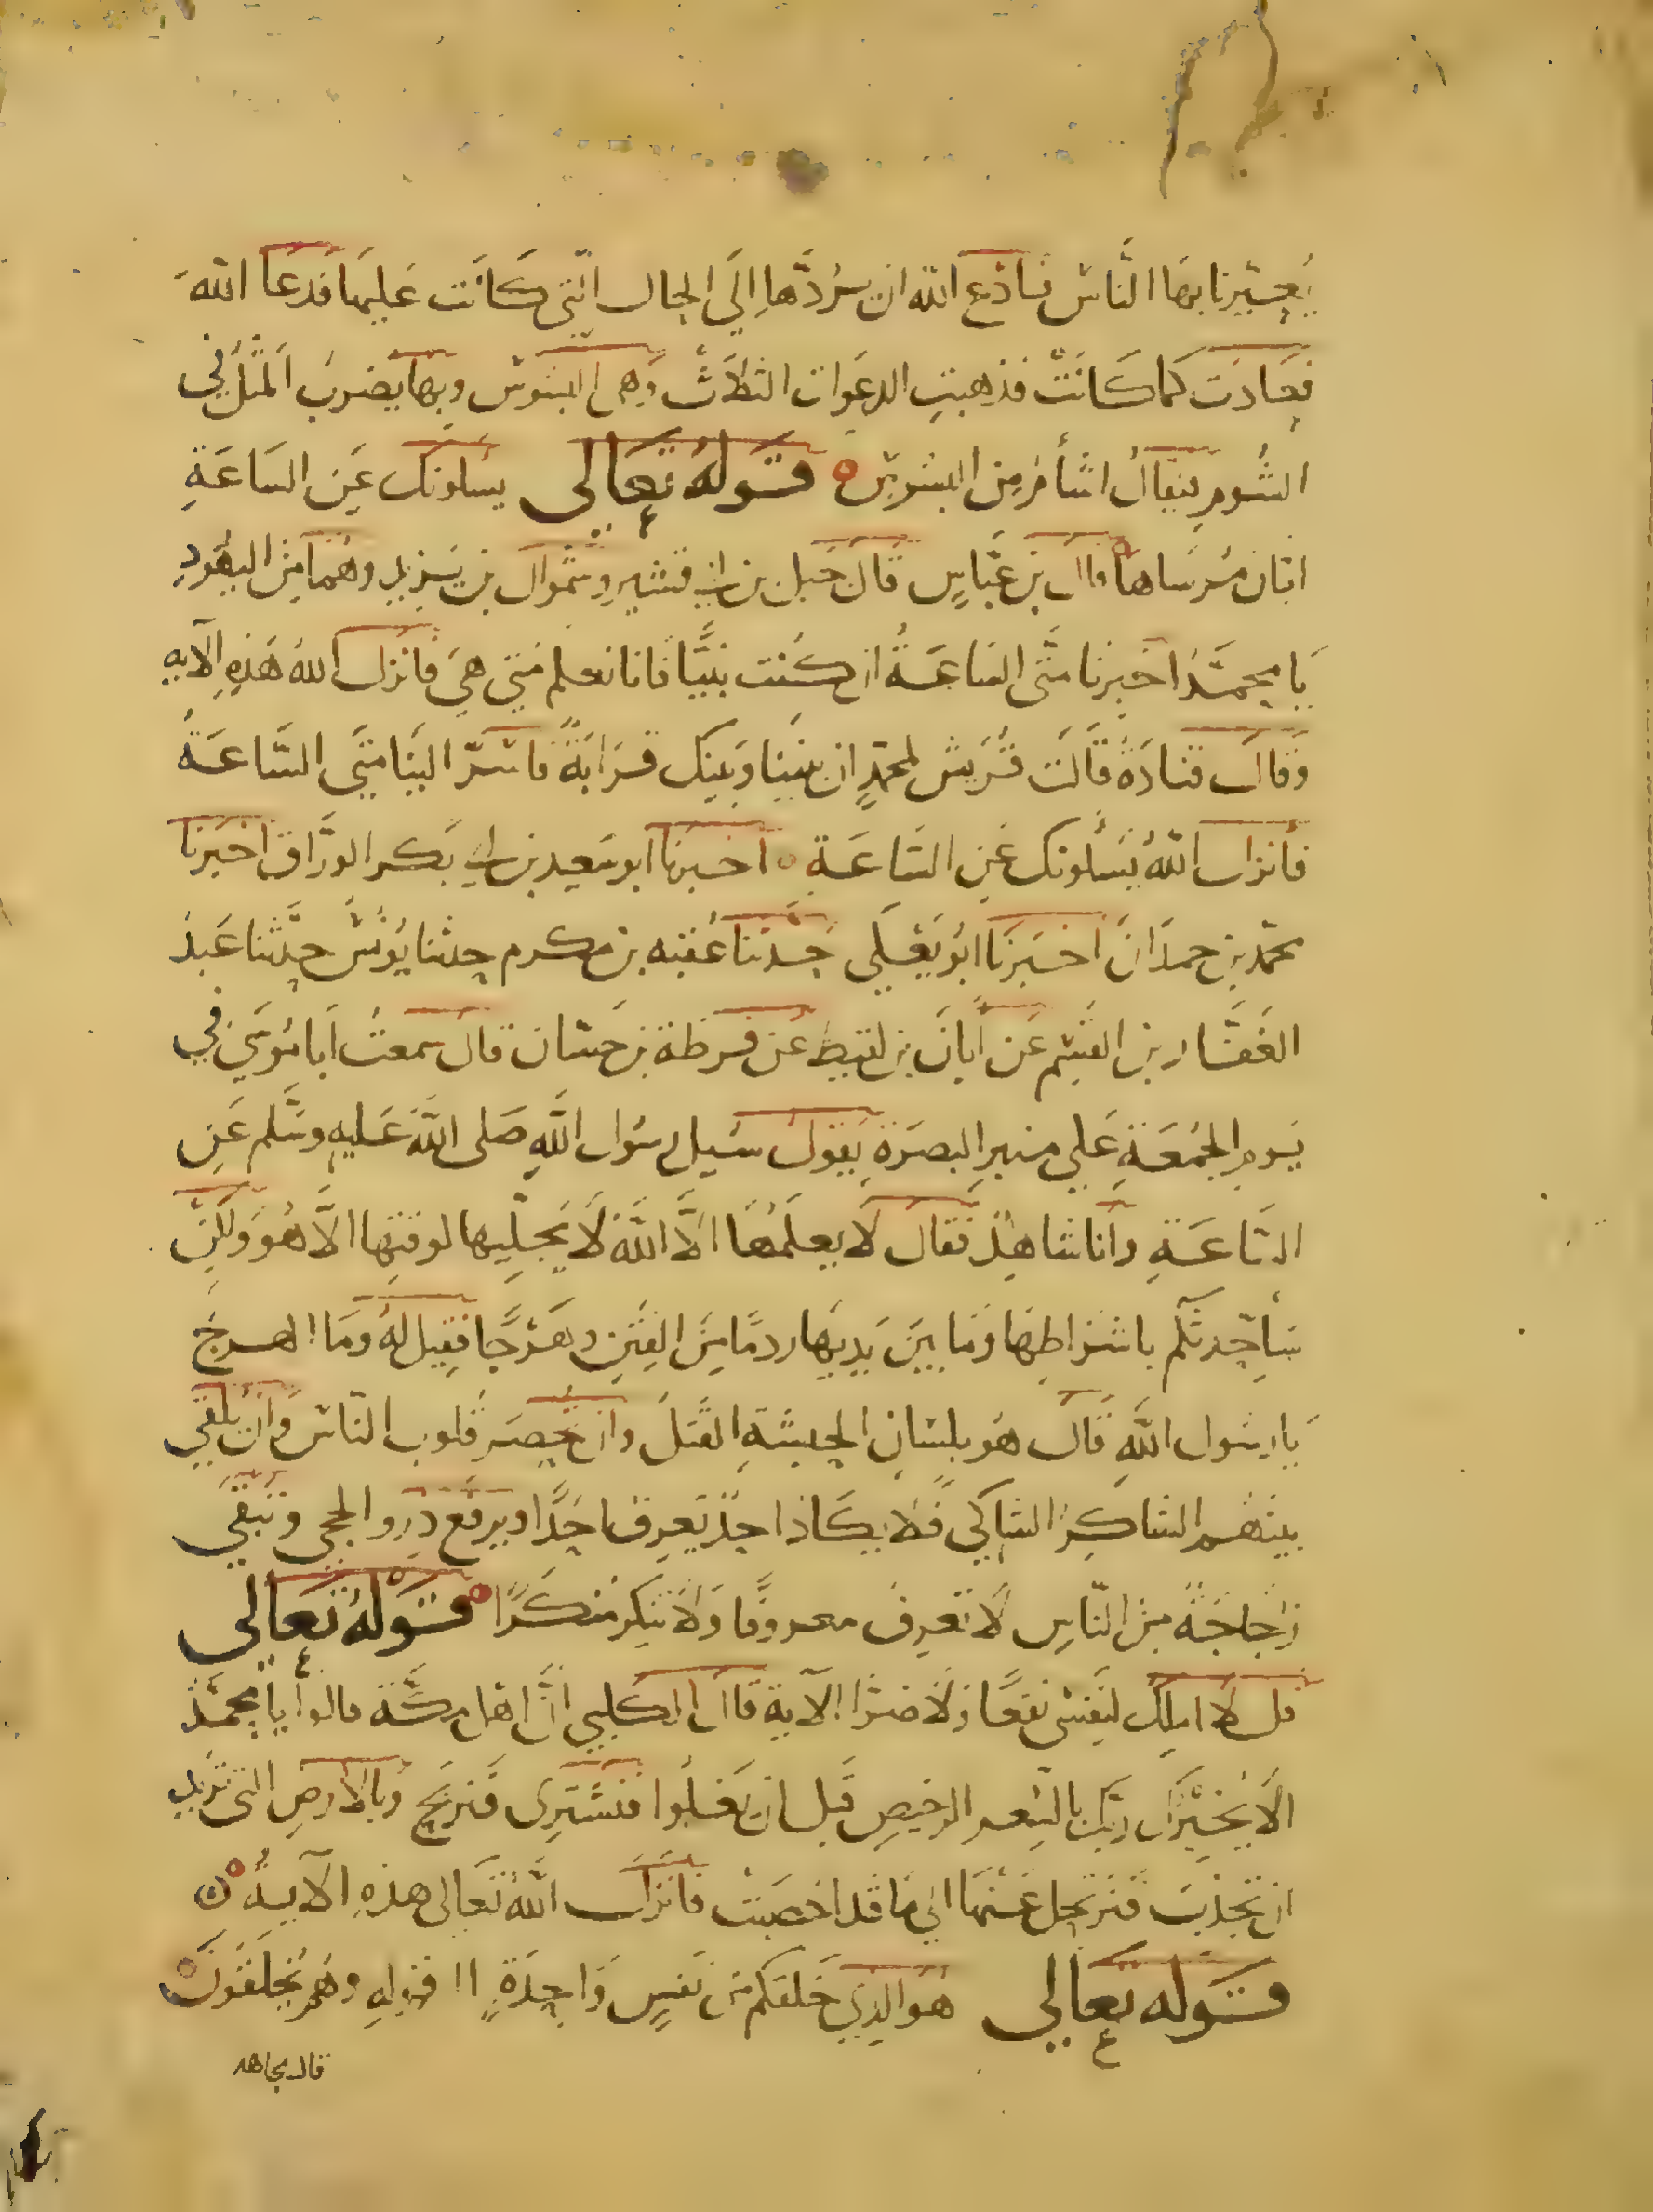 يُعَيِّرُنا بهَا النَّاسُ فَادْع الله ان يَرُدَّها اِلَي الحال الَّتى كَانَت عَليهَا فَدعَا اللهَ
فعَادَت كما كَانَتْ فذهبتِ الدعَوات الثلاثُ وَهى البسُوسُ وبها يضربُ المثَلُ في
الشُومِ فيقالُ اشأمُ مِن البسُوسِ قَوله تعَالى يسلُونك عَن السَاعَةِ
ايان مُرسَاها قال بن عَبّاسٍ قال جَبل بن ابي قشير وشموال بن يَزيد وهُما مِن اليَهُودِ
يَا محمَّدُ اخبرنا مَتَى السَاعَةُ ان كُنت نبيًّا فانا نعلم مَتي هىَ فانزل اللهُ هَذِهِ الآيه
وَقال قتادَة قالت قُرَيش لمحمّدٍ ان بيننا وبينك قَرَابَةً فاسَرّ الينا مَتَي السَّاعَةُ
فأنزل اللهُ يَسألونك عَن السَاعَةِ اخبرنا ابو سَعيد بن ابي بَكر الورَّاق اخبَرنَا
محمّد بن حمدَانَ اخبَرنَا ابُو يَعلَي حَدّثنا عُقبه بن مكرم حدثنا يُونسُ حدَّثنا عَبدُ
الغَفَّار بن القسِم عَن ابانَ بن لقيط عَن قَرظة بن حَسّان قال سمعتُ ابَا مُوسَي في
يَوم الجُمعَةِ عَلي منبر البصرَةِ يَقول سُيل رسُول اللَّهِ صَلى اللَّهُ عَليهِ وسَلم عَن
السَّاعَةِ وَانا شاهدٌ فقال لا يعلَمُهَا الَّا اللَّهُ لَا يُجلِّيها لوقتِها الَّا هُوَ وَلكِن
سَاحدثكُم باشرَاطِهَا وَمَا بيَن يَديهَا ردمًا مِنَ الفِتَنِ وهَرْجًا فقِيل لهُ ومَا الهرجُ
يَا رسُول اللَّهِ قَال هُو بلسَانِ الحبشَةِ القَتلُ وان تُحصَر قلوب النّاسُ وان تُلقى
بينهُم التناكرُ الشاكي فَلا يكَاد احدٌ يَعرِف احَدًا ويرفَع ذوو الحجى وَتبقَى
رَجاجَةٌ مِن النّاسِ لا تعرِف معروفًا وَلا تنكِر مُنكَرًا قَولهُ تعَالى
قل لا املك لِنَفسى نفعًا وَلا ضرّا الآية قال الكلبى انَّ اهل مكَّة قالوا يا محمَّدُ
الَا يُخبِرُك ربُّك بالسِّعر الرخيصِ قَبل ان يَغلُوا فنشتَرِى فَنربَحَ وَبالارضِ التى تريد
ان تجدُبَ فَنرتحِل عَنهَا الى مَا قد اخصَبت فانزل اللَّهُ تَعالى هذهِ الآيةُ
قَوله تعَالى هُوَ الذي خَلقكم مّن نفسٍ وَاحِدَةٍ الى قولهِ وَهُم يُخلَقُونَ
قال مجاهد